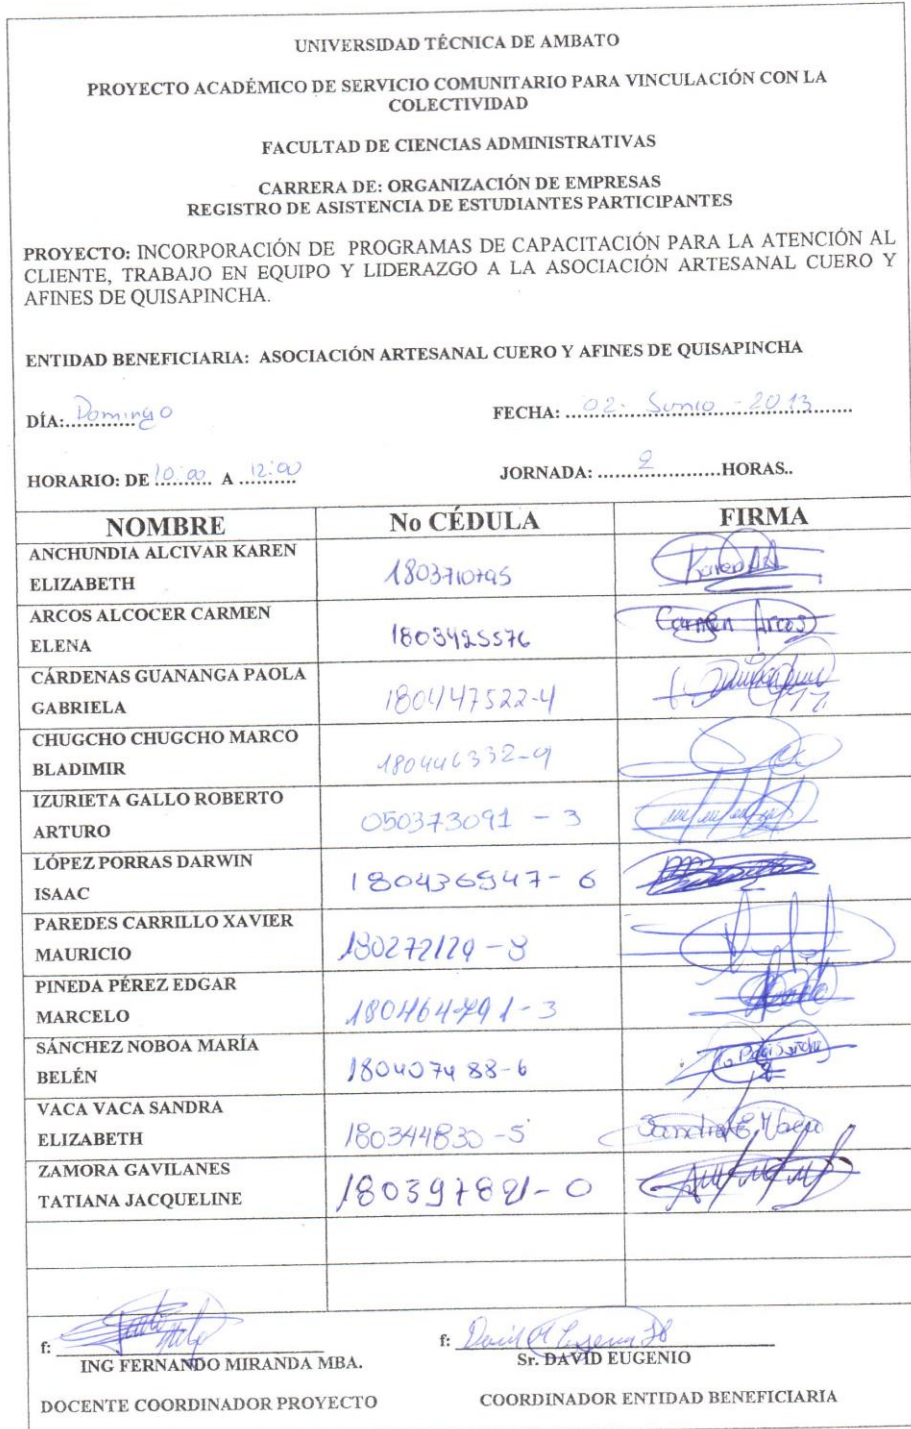 UNIVERSIDAD TÉCNICA DE AMBATO
PROYECTO ACADÉMICO DE SERVICIO COMUNITARIO PARA VINCULACIÓN CON LA
COLECTIVIDAD
FACULTAD DE CIENCIAS ADMINISTRATIVAS
CARRERA DE: ORGANIZACIÓN DE EMPRESAS
REGISTRO DE ASISTENCIA DE ESTUDIANTES PARTICIPANTES
PROYECTO: INCORPORACIÓN DE PROGRAMAS DE CAPACITACIÓN PARA LA ATENCIÓN AL
CLIENTE, TRABAJO EN EQUIPO Y LIDERAZGO A LA ASOCIACIÓN ARTESANAL CUERO Y
AFINES DE QUISAPINCHA.
ENTIDAD BENEFICIARIA: ASOCIACIÓN ARTESANAL CUERO Y AFINES DE QUISAPINCHA
DÍA: Domingo FECHA: 02- Junio - 2013
HORARIO: DE 10:00 A 12:00 JORNADA: 2 HORAS..
NOMBRE No CÉDULA FIRMA
ANCHUNDIA ALCIVAR KAREN
ELIZABETH 1803710795
ARCOS ALCOCER CARMEN
ELENA 1803425576 Carmen Arcos
CÁRDENAS GUANANGA PAOLA
GABRIELA 180447522-4
CHUGCHO CHUGCHO MARCO
BLADIMIR 180446332-9
IZURIETA GALLO ROBERTO
ARTURO 050373091 - 3
LÓPEZ PORRAS DARWIN
ISAAC 180436547- 6
PAREDES CARRILLO XAVIER
MAURICIO
PINEDA PÉREZ EDGAR
MARCELO 180464791-3
SÁNCHEZ NOBOA MARÍA
BELÉN 180407488-6
VACA VACA SANDRA
ELIZABETH 180344830-5 Sandra E. Vaca
ZAMORA GAVILANES
TATIANA JACQUELINE
f: f:
ING FERNANDO MIRANDA MBA. Sr. DAVID EUGENIO
DOCENTE COORDINADOR PROYECTO COORDINADOR ENTIDAD BENEFICIARIA